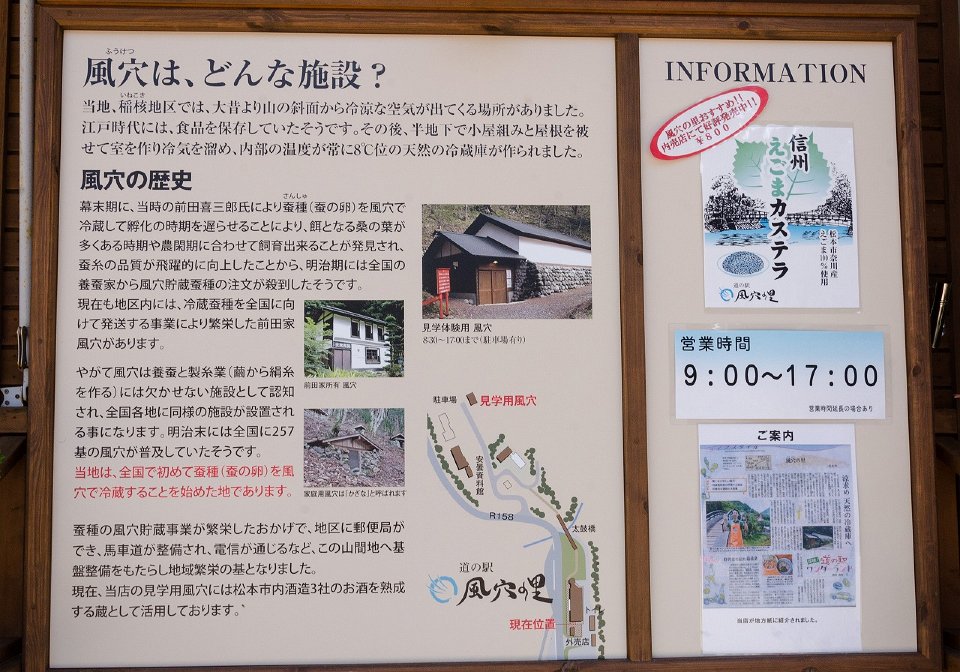 ふうけつ
風穴は、どんな施設？
いねこき
当地、稲核地区では、大昔より山の斜面から冷涼な空気が出てくる場所がありました。
江戸時代には、食品を保存していたそうです。その後、半地下で小屋組みと屋根を被
せて室を作り冷気を溜め、内部の温度が常に8℃位の天然の冷蔵庫が作られました。
風穴の歴史
さんしゅ
幕末期に、当時の前田喜三郎氏により蚕種（蚕の卵）を風穴で
冷蔵して孵化の時期を遅らせることにより、餌となる桑の葉が
多くある時期や農閑期に合わせて飼育出来ることが発見され、
蚕糸の品質が飛躍的に向上したことから、明治期には全国の
養蚕家から風穴貯蔵蚕種の注文が殺到したそうです。
現在も地区内には、冷蔵蚕種を全国に向
けて発送する事業により繁栄した前田家
風穴があります。
やがて風穴は養蚕と製糸業（繭から絹糸
を作る）には欠かせない施設として認知
され、全国各地に同様の施設が設置され
る事になります。明治末には全国に257
基の風穴が普及していたそうです。
当地は、全国で初めて蚕種（蚕の卵）を風
穴で冷蔵することを始めた地であります。
蚕種の風穴貯蔵事業が繁栄したおかげで、地区に郵便局が
でき、馬車道が整備され、電信が通じるなど、この山間地へ基
盤整備をもたらし地域繁栄の基となりました。
現在、当店の見学用風穴には松本市内酒造3社のお酒を熟成
する蔵として活用しております。
見学体験用 風穴
8:30〜17:00まで（駐車場有り）
前田家所有 風穴
家庭用風穴は「かざな」と呼ばれます
駐車場
見学用風穴
安曇資料館
R158
太鼓橋
道の駅
風穴の里
現在位置
トイレ
外売店
INFORMATION
風穴の里おすすめ!!
内売店にて好評発売中!!
¥800
信州
えごまカステラ
松本市奈川産
えごま100%使用
道の駅
風穴の里
営業時間
9:00〜17:00
営業時間延長の場合あり
ご案内
風穴の里
涼求め 天然の冷蔵庫へ
道の駅
当店が地方紙に紹介されました。